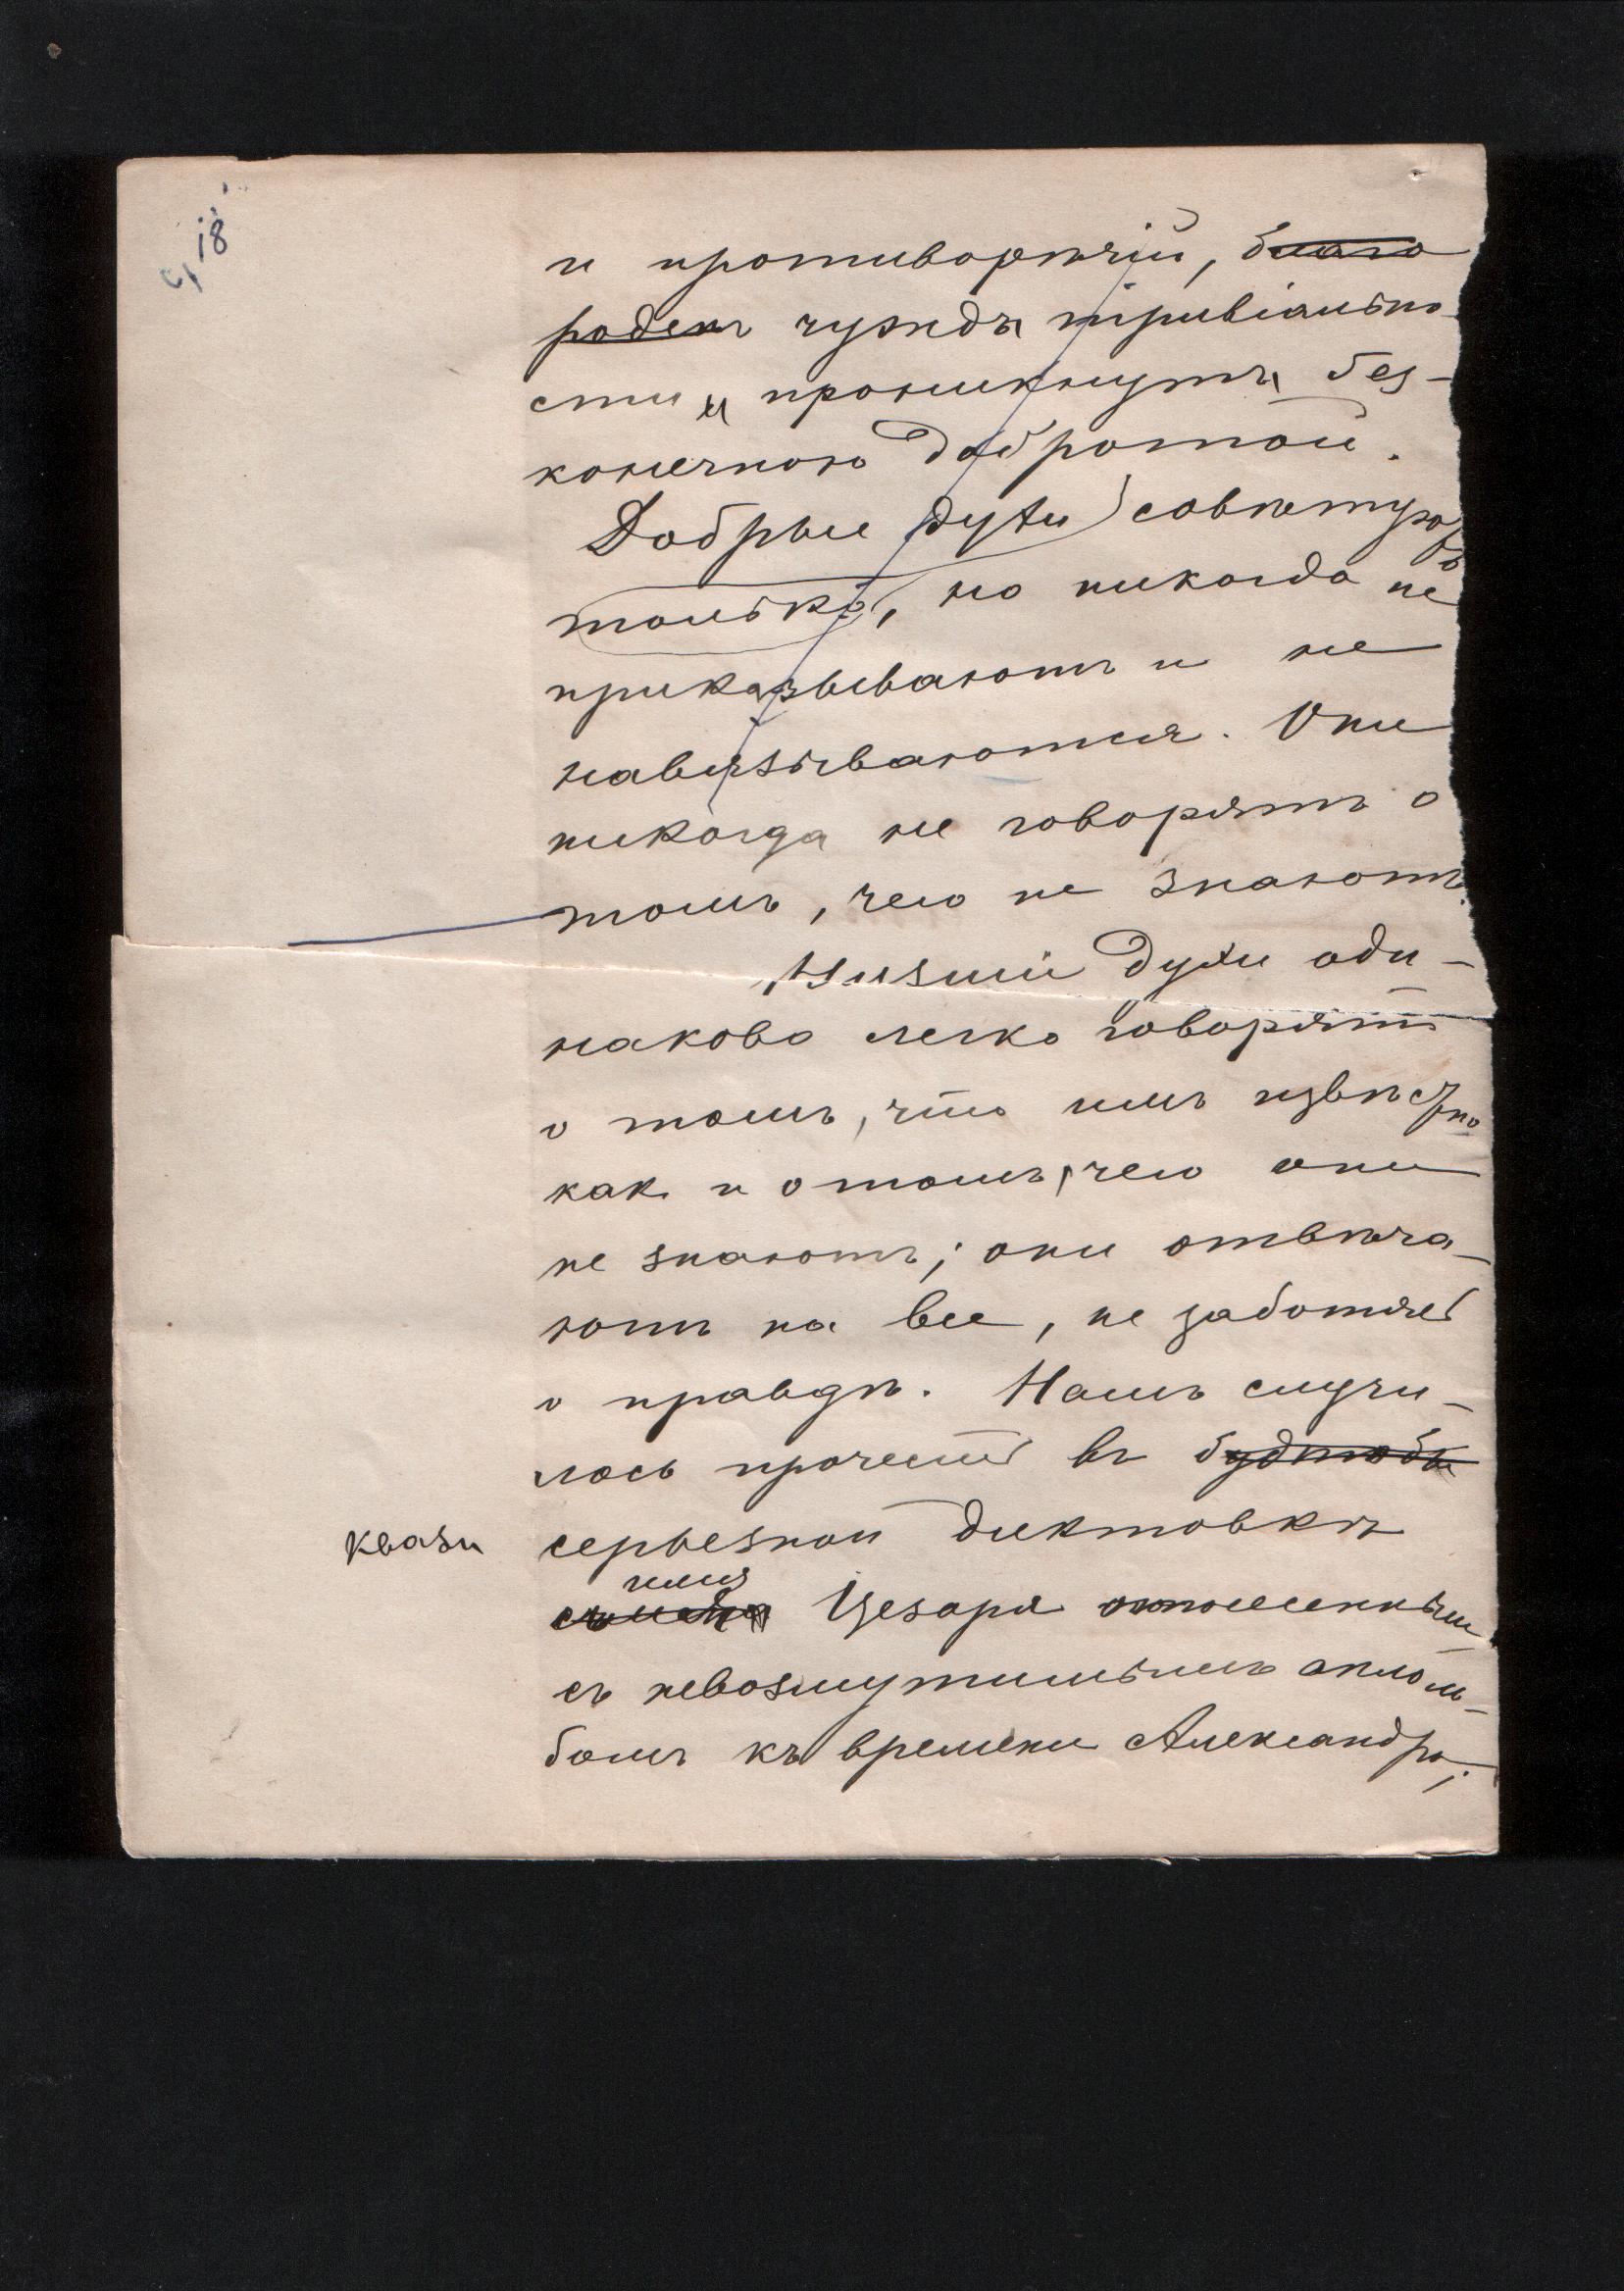 18
и противорѣчій, благо
роденъ чуждъ тривіально
сти и проникнутъ без-
конечною добротой.
Добрые духи совѣтуютъ
только, но никогда не
приказываютъ и не
навязываются. Они
никогда не говорятъ о
томъ, чего не знаютъ.
Низшіи духи оди-
наково легко говорятъ
о томъ, что имъ извѣстно
как и о томъ, чего они
не знаютъ; они отвѣча-
ютъ на все, не заботясь
о правдѣ. Намъ случи-
лось прочесть въ будтобы
квази серьезной диктовкѣ
имя
Цезаря отнесеннымъ
съ невозмутимымъ апломъ-
бомъ къ времени Александра;